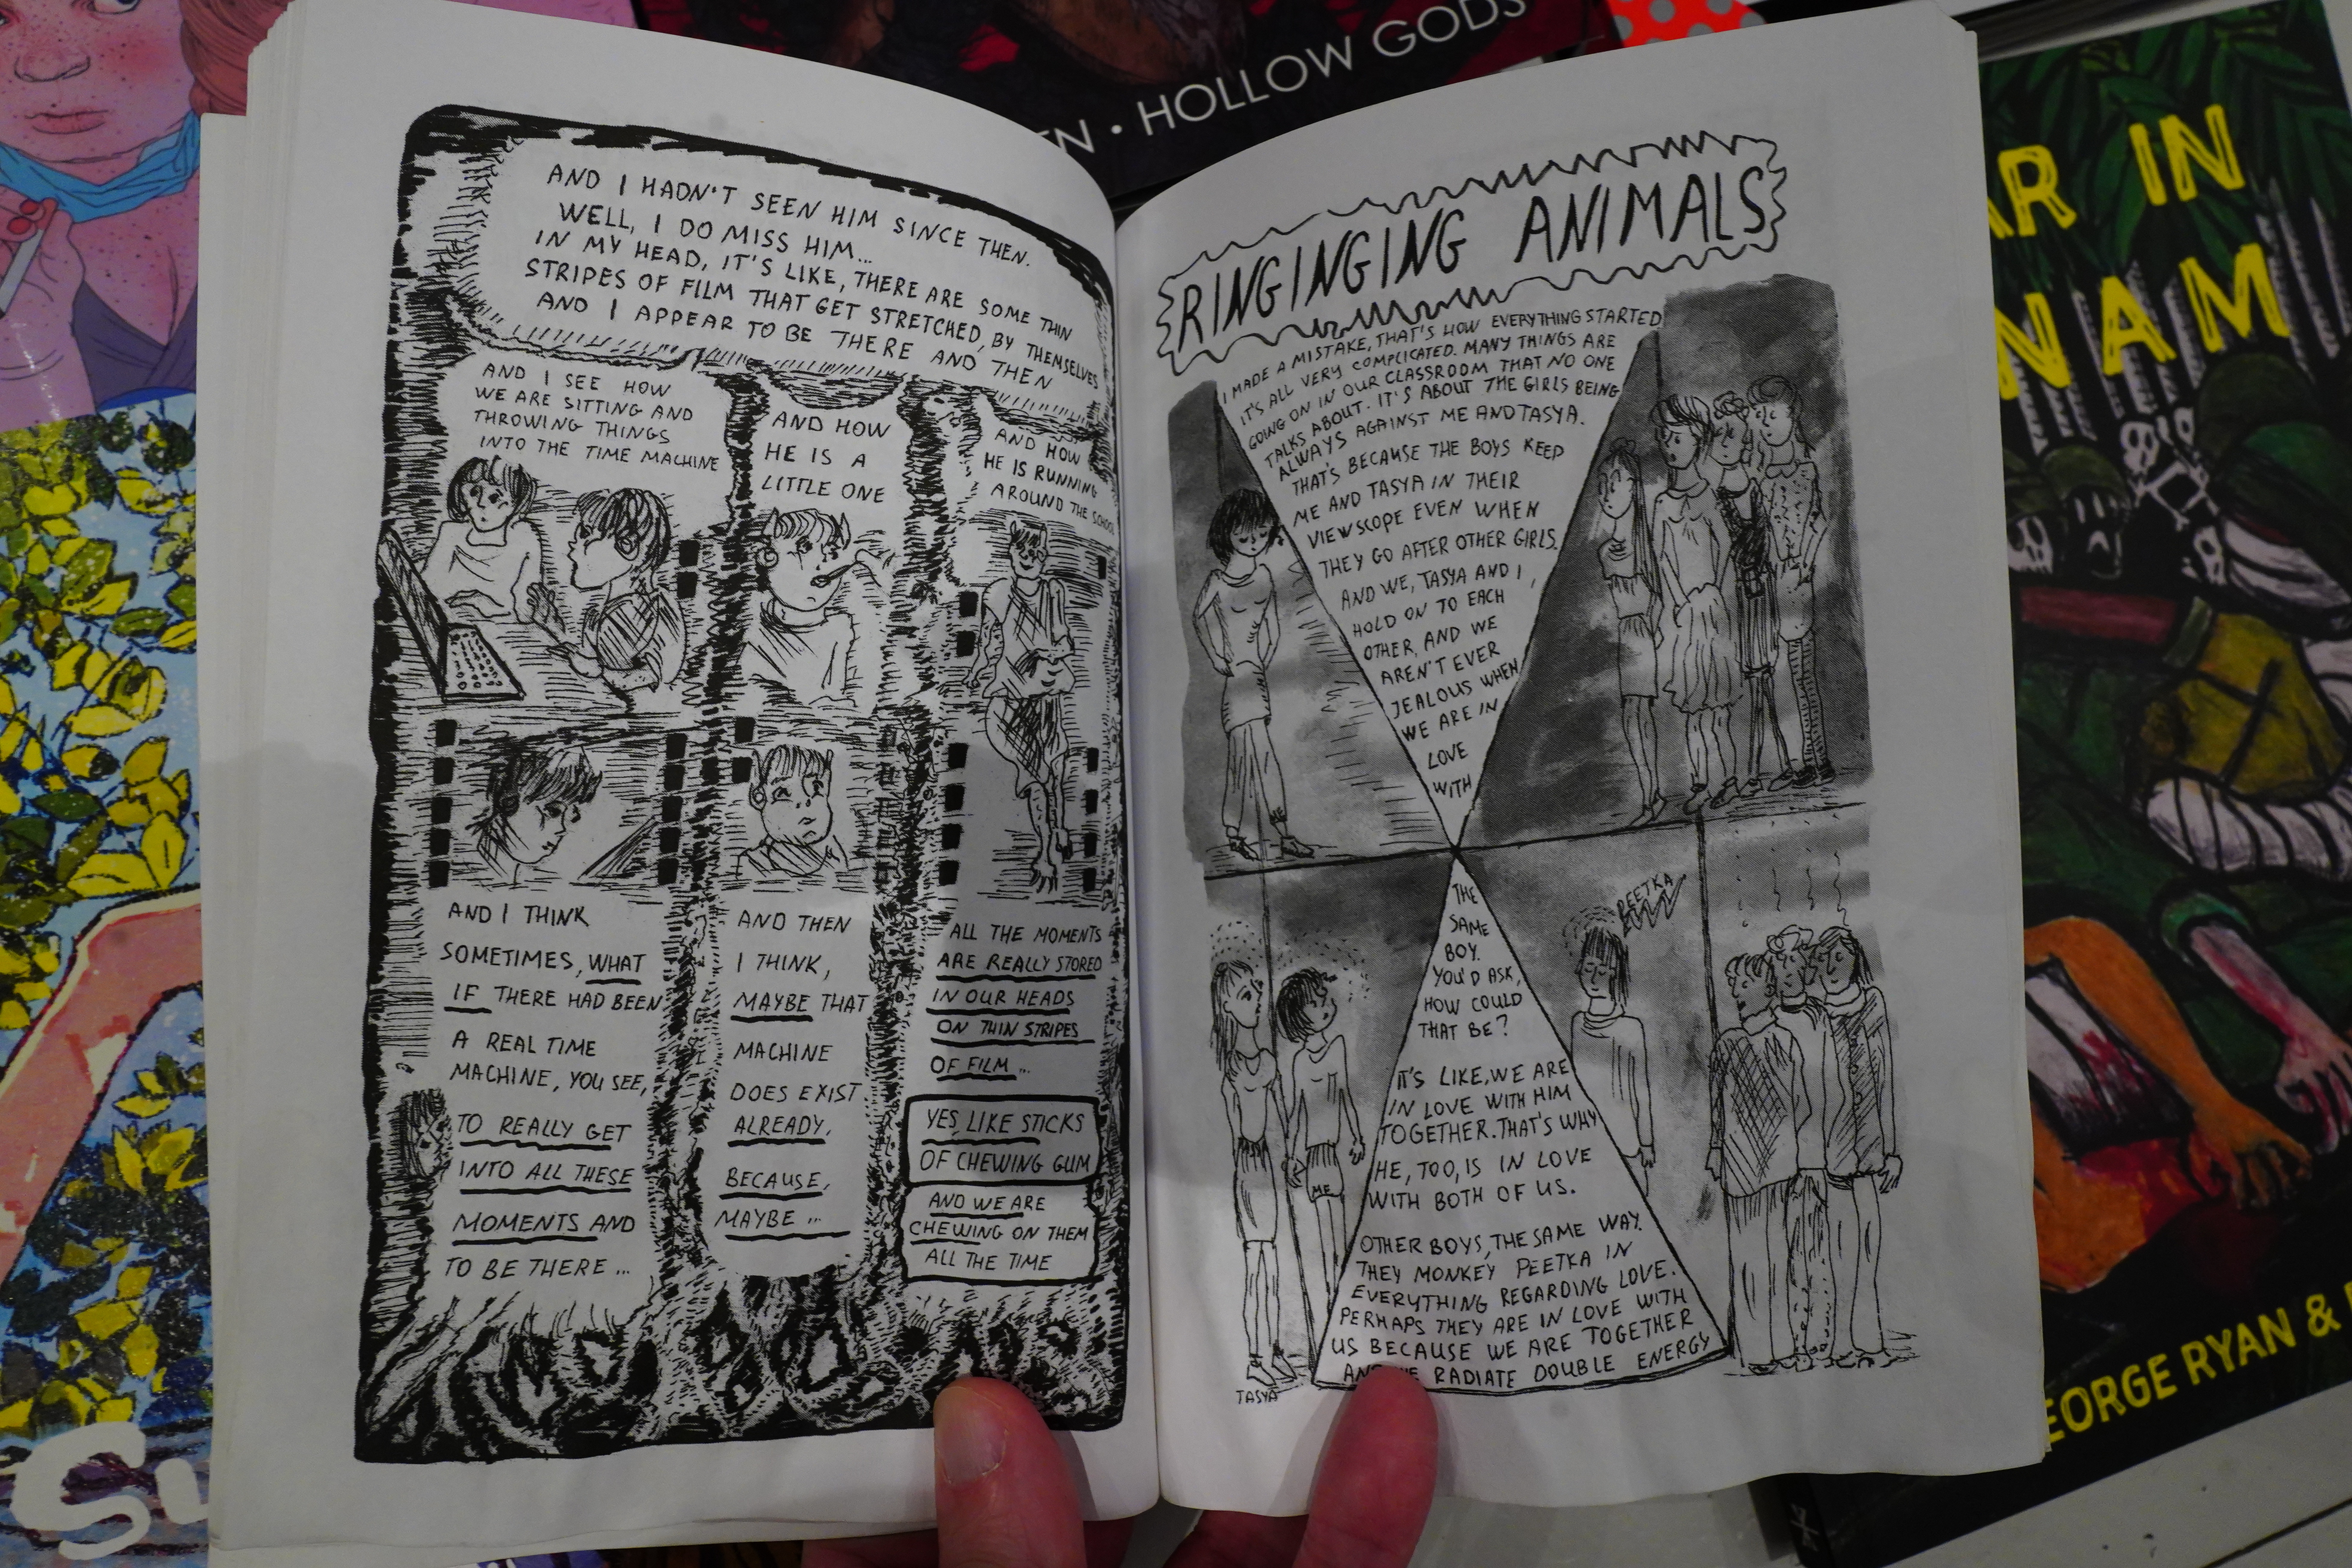 EN • HOLLOW GODS
AR IN
NAM
EORGE RYAN &
Su
AND I HADN'T SEEN HIM SINCE THEN.
WELL, I DO MISS HIM...
IN MY HEAD, IT'S LIKE, THERE ARE SOME THIN
STRIPES OF FILM THAT GET STRETCHED, BY THEMSELVES
AND I APPEAR TO BE THERE AND THEN
AND I SEE HOW
WE ARE SITTING AND
THROWING THINGS
INTO THE TIME MACHINE
AND HOW
HE IS A
LITTLE ONE
AND HOW
HE IS RUNNING
AROUND THE SCHOOL
AND I THINK
SOMETIMES, WHAT
IF THERE HAD BEEN
A REAL TIME
MACHINE, YOU SEE,
TO REALLY GET
INTO ALL THESE
MOMENTS AND
TO BE THERE...
AND THEN
I THINK,
MAYBE THAT
MACHINE
DOES EXIST
ALREADY,
BECAUSE,
MAYBE...
ALL THE MOMENTS
ARE REALLY STORED
IN OUR HEADS
ON THIN STRIPES
OF FILM...
YES, LIKE STICKS
OF CHEWING GUM
AND WE ARE
CHEWING ON THEM
ALL THE TIME
RINGINGING ANIMALS
I MADE A MISTAKE, THAT'S HOW EVERYTHING STARTED
IT'S ALL VERY COMPLICATED. MANY THINGS ARE
GOING ON IN OUR CLASSROOM THAT NO ONE
TALKS ABOUT. IT'S ABOUT THE GIRLS BEING
ALWAYS AGAINST ME AND TASYA.
THAT'S BECAUSE THE BOYS KEEP
ME AND TASYA IN THEIR
VIEWSCOPE EVEN WHEN
THEY GO AFTER OTHER GIRLS.
AND WE, TASYA AND I,
HOLD ON TO EACH
OTHER, AND WE
AREN'T EVER
JEALOUS WHEN
WE ARE IN
LOVE
WITH
THE
SAME
BOY.
YOU'D ASK,
HOW COULD
THAT BE?
IT'S LIKE, WE ARE
IN LOVE WITH HIM
TOGETHER. THAT'S WHY
HE, TOO, IS IN LOVE
WITH BOTH OF US.
OTHER BOYS, THE SAME WAY.
THEY MONKEY PEETKA IN
EVERYTHING REGARDING LOVE.
PERHAPS THEY ARE IN LOVE WITH
US BECAUSE WE ARE TOGETHER
AND WE RADIATE DOUBLE ENERGY
PEETKA
ME
TASYA